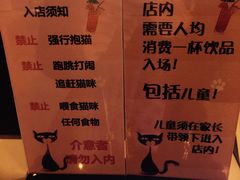 入店须知
禁止 强行抱猫
禁止 跑跳打闹
追赶猫咪
禁止 喂食猫咪
任何食物
介意者
请勿入内
店内
需要人均
消费一杯饮品
入场!
包括儿童!
儿童须在家长
带领下进入
店内!